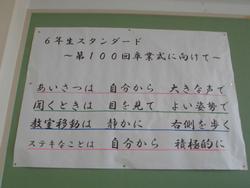 ６年生スタンダード
～第１００回卒業式に向けて～
あいさつは 自分から 大きな声で
聞くときは 目を見て よい姿勢で
教室移動は 静かに 右側を歩く
ステキなことは 自分から 積極的に